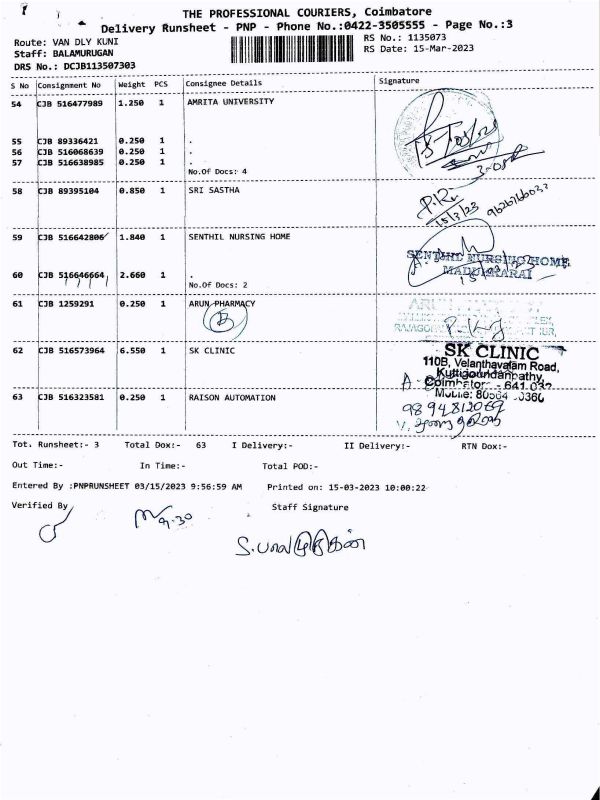 THE PROFESSIONAL COURIERS, Coimbatore
Delivery Runsheet - PNP - Phone No.:0422-3505555 - Page No.:3
Route: VAN DLY KUNI
Staff: BALAMURUGAN
DRS No.: DCJB113507303
RS No.: 1135073
RS Date: 15-Mar-2023
S No Consignment No Weight PCS Consignee Details Signature
54 CJB 516477989 1.250 1 AMRITA UNIVERSITY
55 CJB 89336421 0.250 1 .
56 CJB 516068639 0.250 1 .
57 CJB 516638985 0.250 1 .
No.Of Docs: 4
58 CJB 89395104 0.850 1 SRI SASTHA
15/3/23
59 CJB 516642806 1.840 1 SENTHIL NURSING HOME
SENTHIL NURSING HOME
MADUKKARAI
60 CJB 516646664 2.660 1 .
No.Of Docs: 2
61 CJB 1259291 0.250 1 ARUN PHARMACY
62 CJB 516573964 6.550 1 SK CLINIC
SK CLINIC
110B, Velanthavalam Road,
Kuttigoundanpathy,
63 CJB 516323581 0.250 1 RAISON AUTOMATION
9894812069
Tot. Runsheet:- 3 Total Dox:- 63 I Delivery:- II Delivery:- RTN Dox:-
Out Time:- In Time:- Total POD:-
Entered By :PNPRUNSHEET 03/15/2023 9:56:59 AM Printed on: 15-03-2023 10:00:22
Verified By Staff Signature
9.30